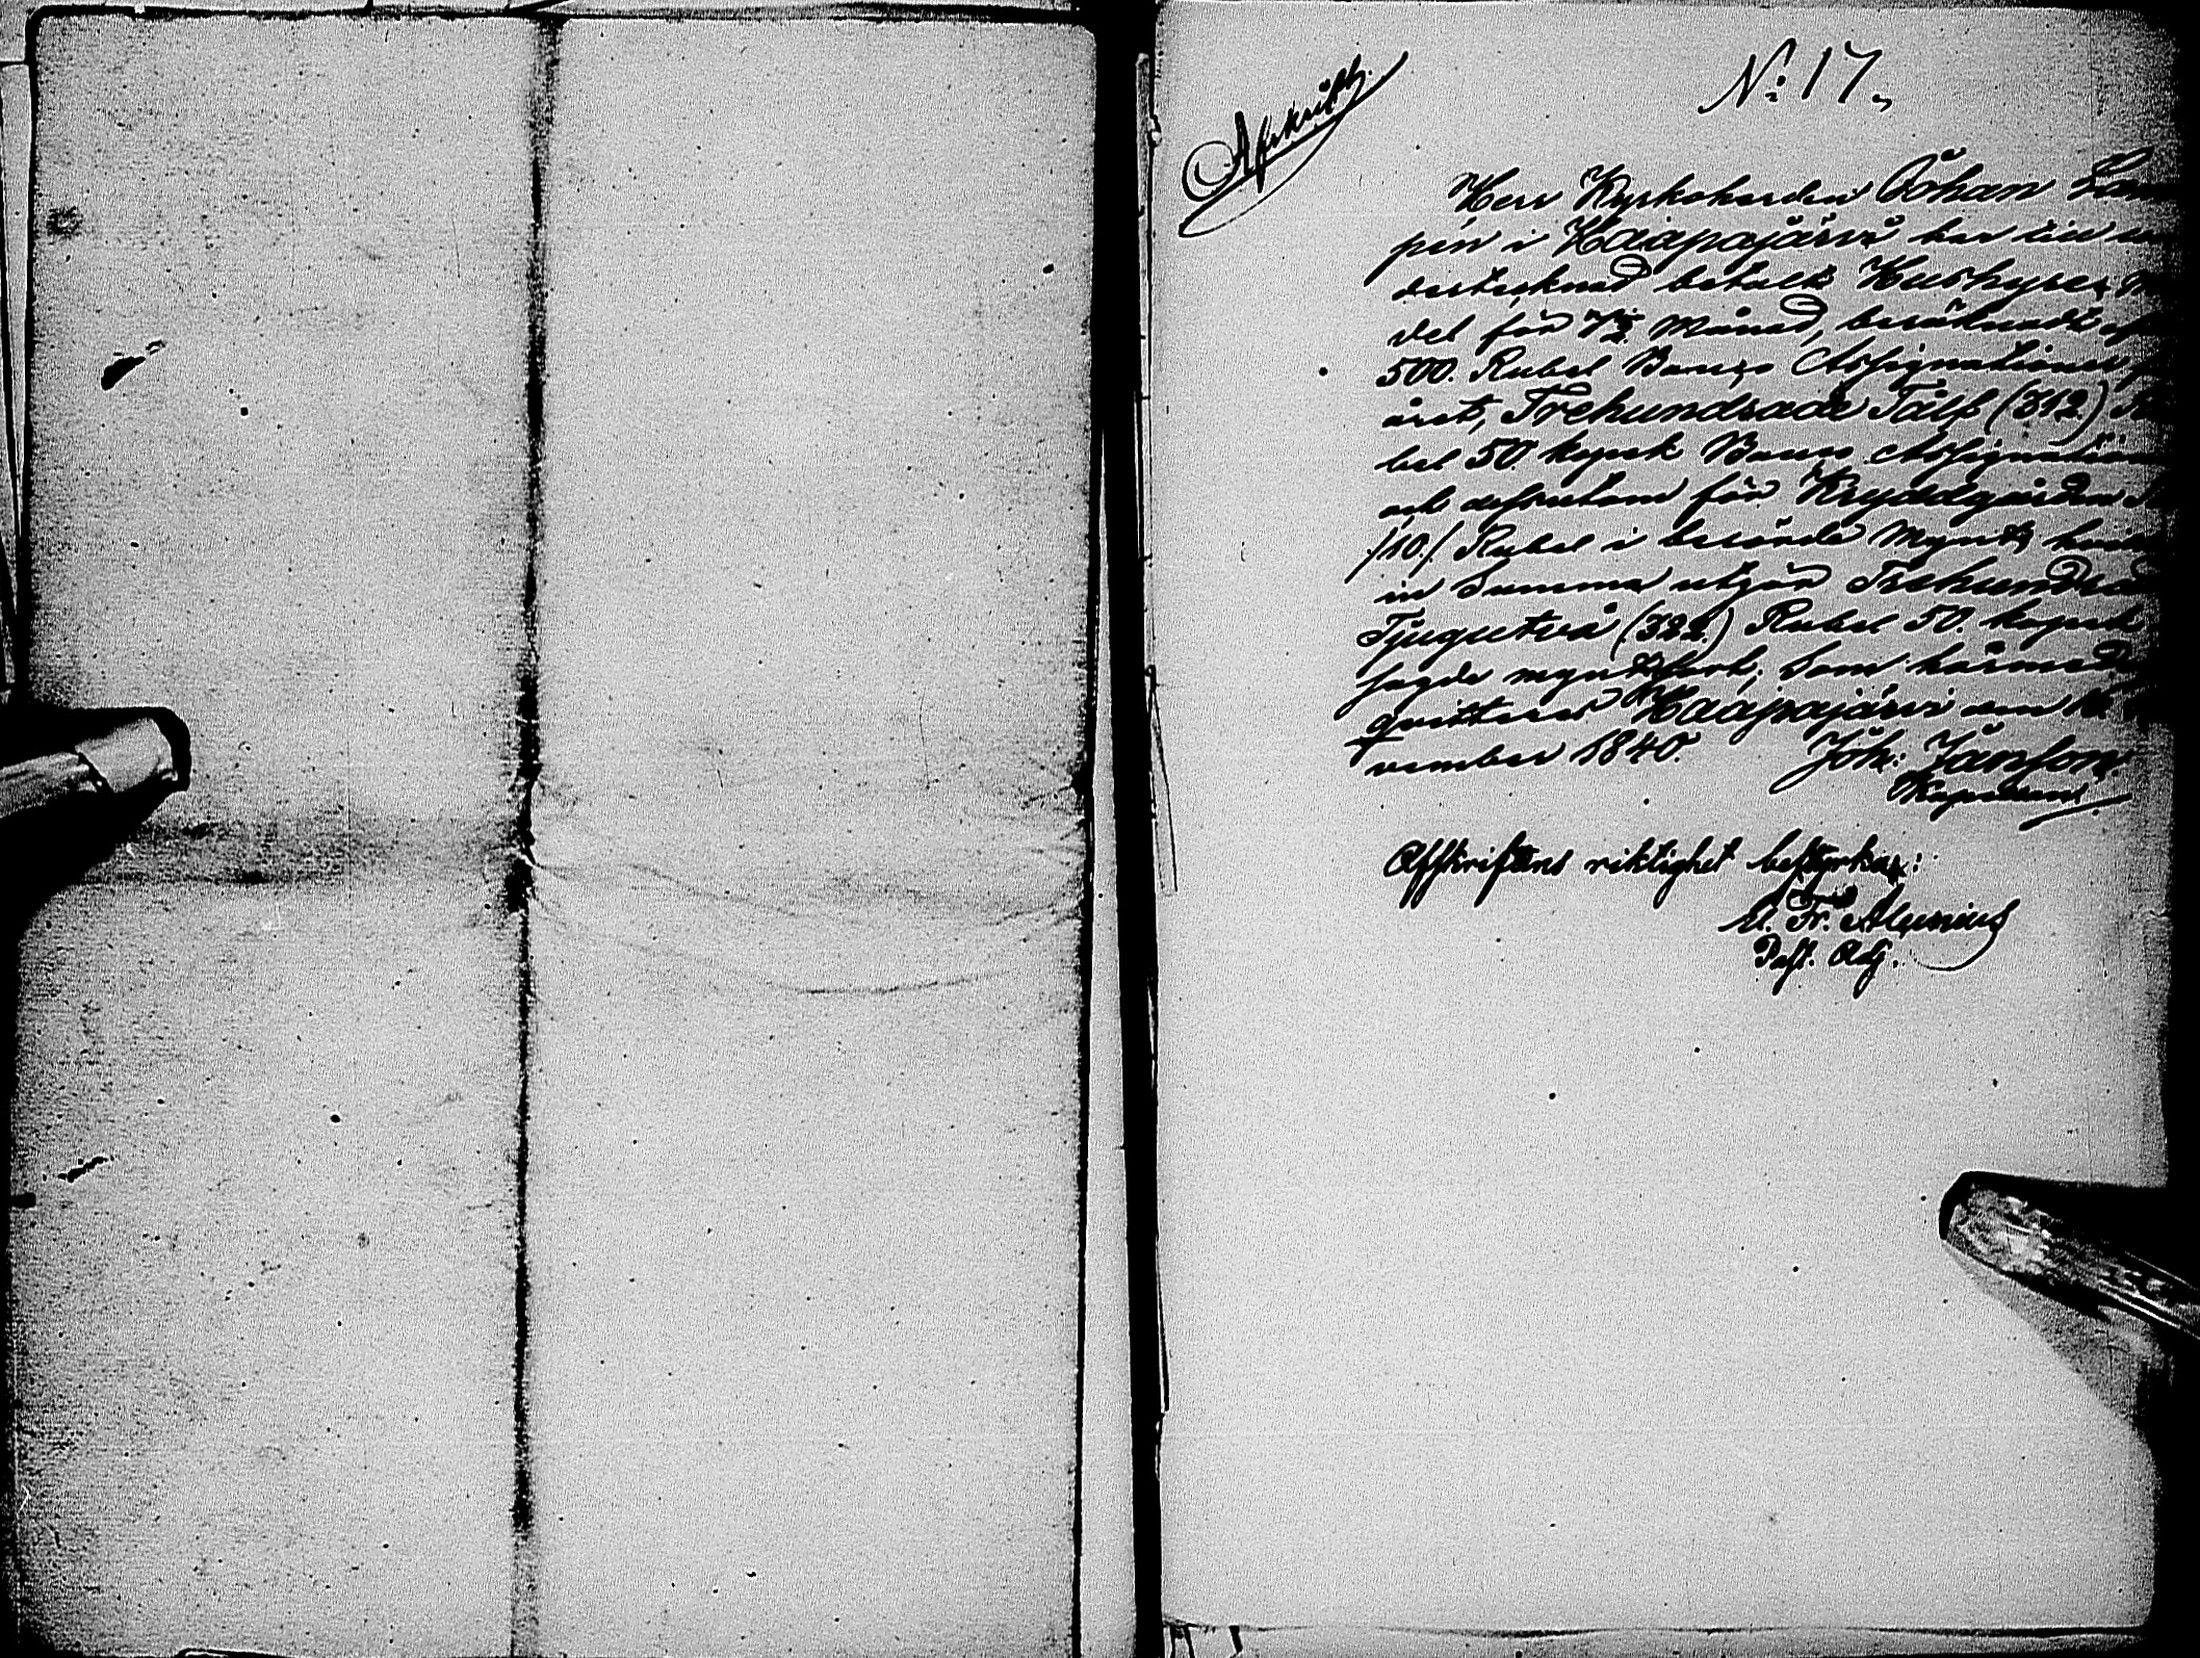 Afskrift.
N: 17.
Herr Kyrkoherden Johan Lam
pén i Haapajärvi har till un
dertecknad betalt Hushyres M
del för 7½ Månad, beräknadt
500. Rubel Banco Assignationer
året, Trehundrade Tolf (312) Ru
bel 50 kopek Banco Assignationer
och dessutom för Kryddgården
/10/ Rubel i berörde Mynt,
in Summa utgör Trehundrad
Tjugutvå (322) Rubel 50. kopek
sagde myntsort; Som härmed
qvitteras Haapajärvi den 16.
vember 1840. Joh: Janson
Kopman
Afskriftens riktighet bestyrkas:
Fr. Alcenius
Past. Adj.